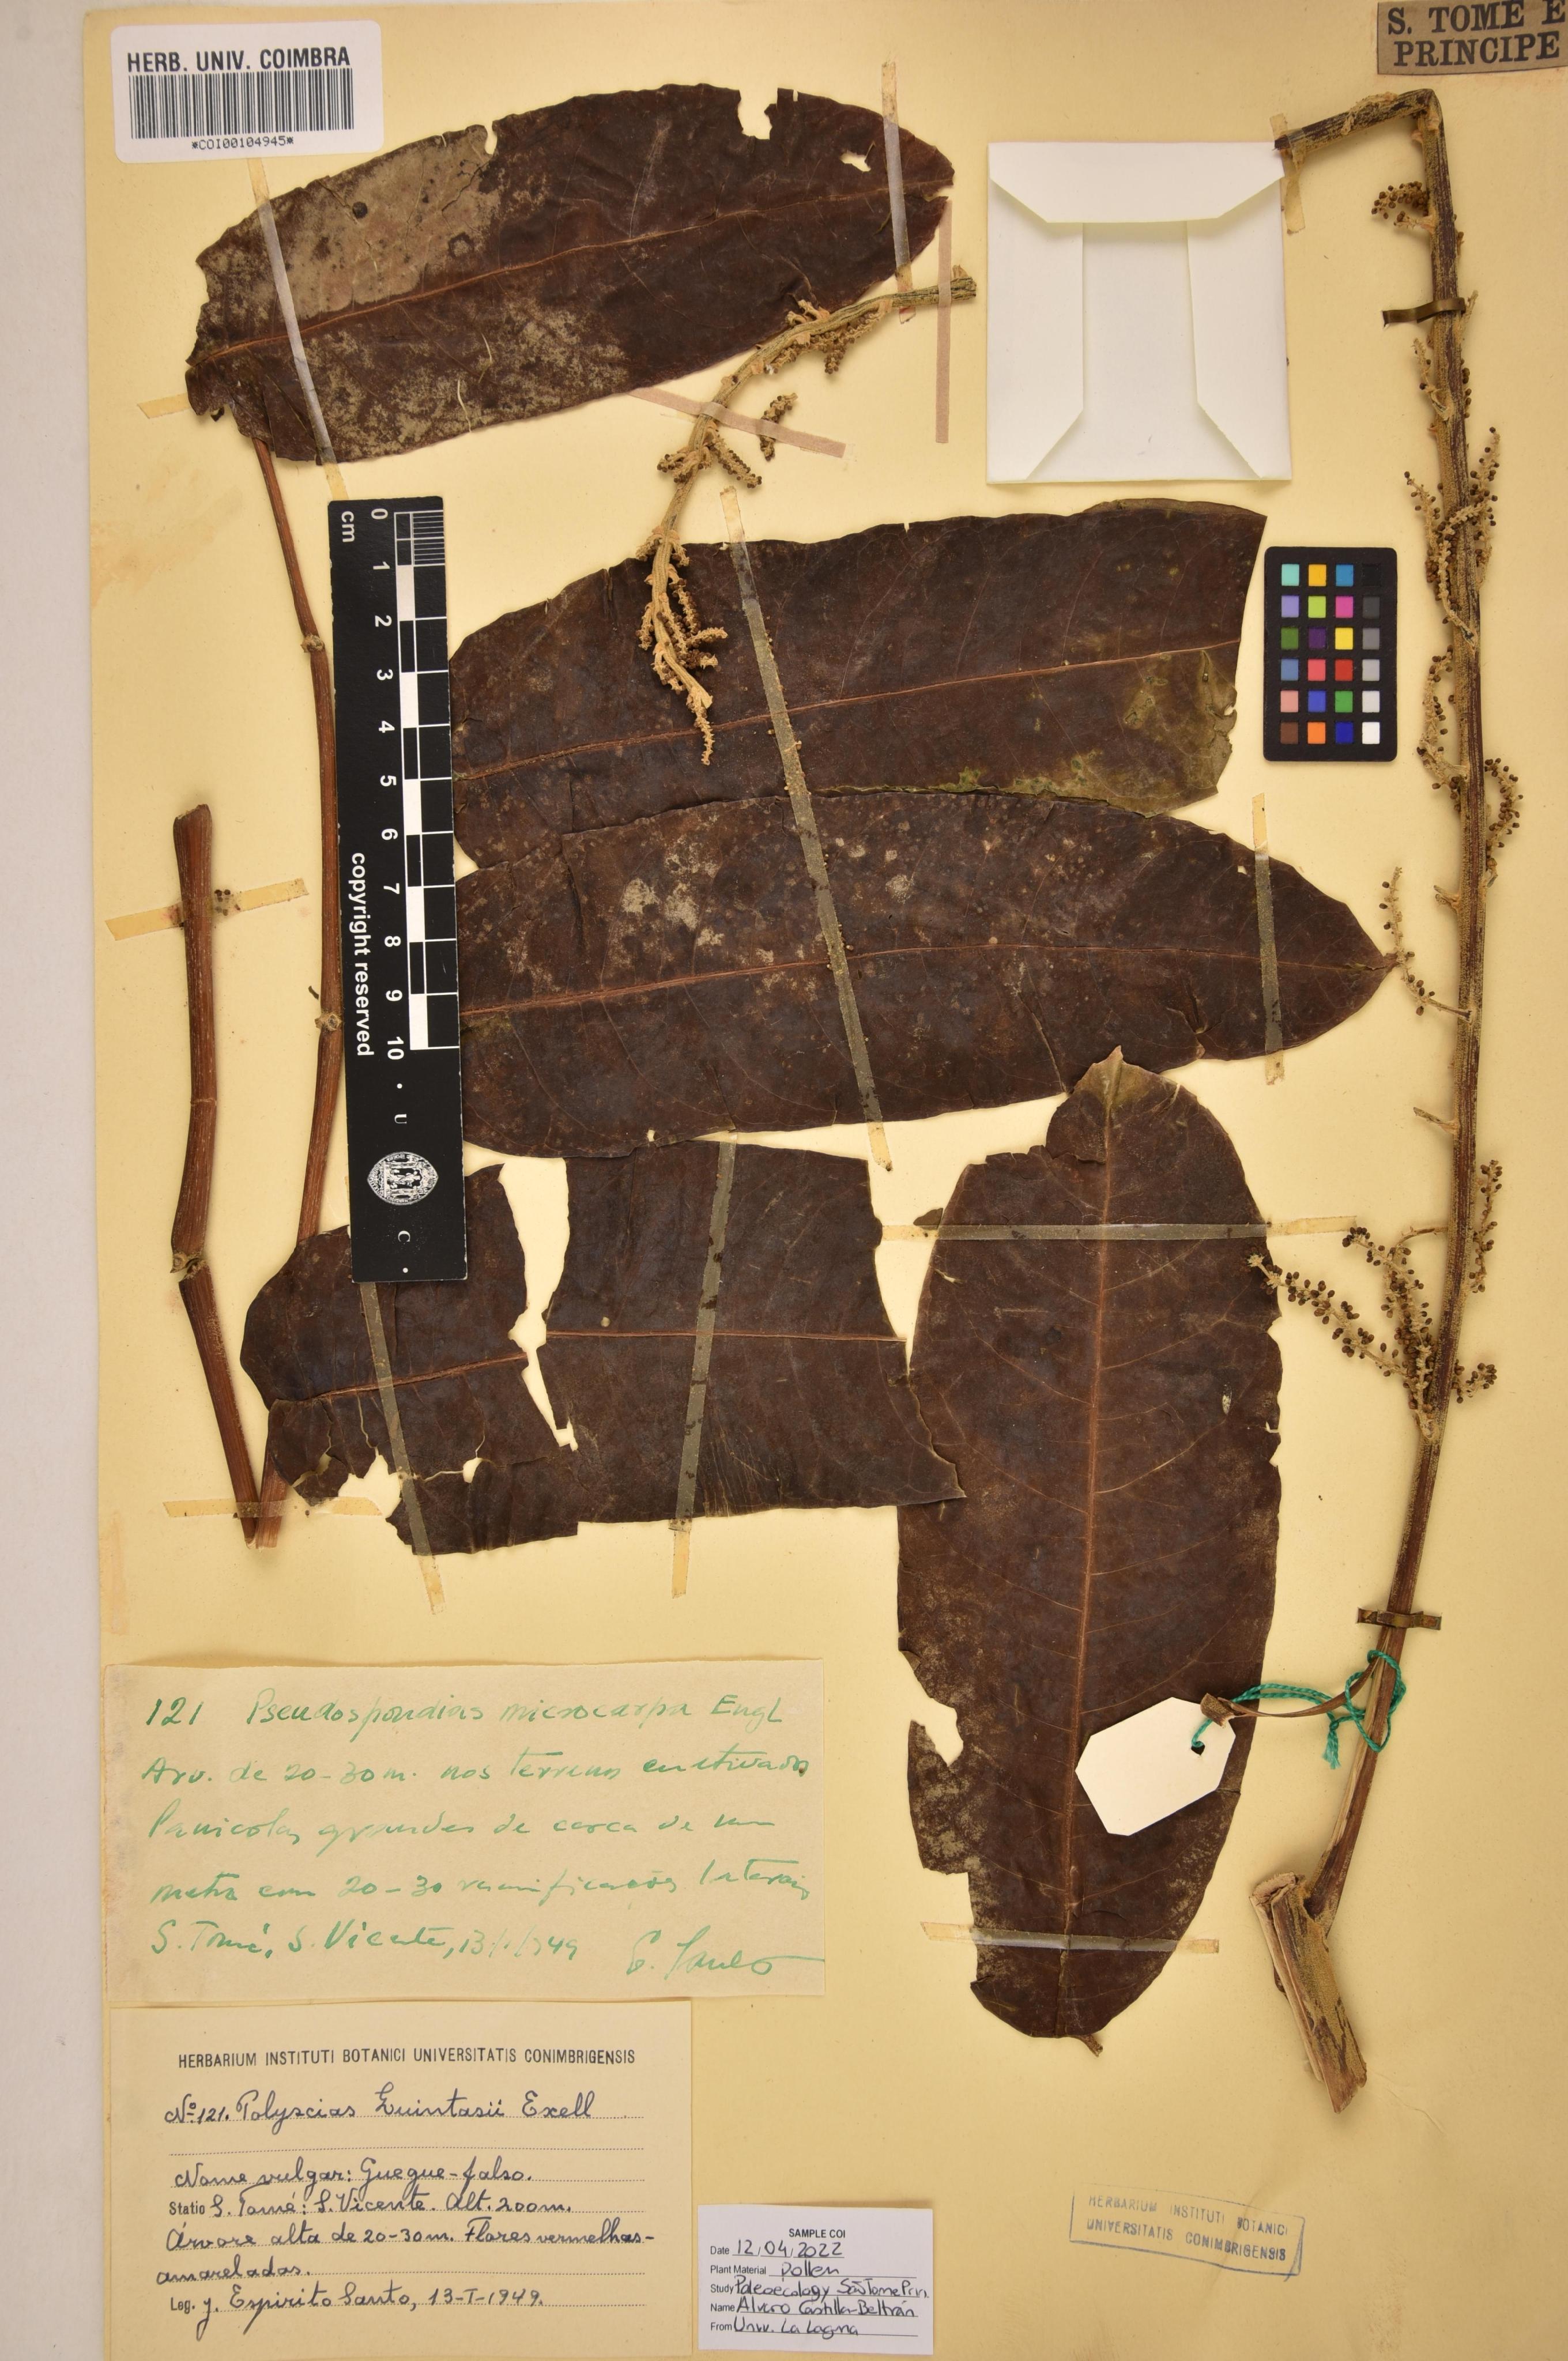 HERB. UNIV. COIMBRA
*COI00104945*
S. TOME E
PRINCIPE
cm
0
1
2
3
4
5
6
7
8
9
10
copyright reserved
• U C •
121 Pseudospondias microcarpa Engl
Arv. de 20-30 m. nos terrenos cultivados
Panicolas grandes de cerca de um
metro com 20-30 ramificações laterais
S. Tomé, S. Vicente, 13/1/1949 E. Santo
HERBARIUM INSTITUTI BOTANICI UNIVERSITATIS CONIMBRIGENSIS
Nº 121. Polyscias Quintasii Exell
Nome vulgar: Guegue-falso.
Statio S. Tomé: S. Vicente. Alt. 200m.
Árvore alta de 20-30m. Flores vermelhas-
amareladas.
Leg. J. Espirito Santo, 13-I-1949.
SAMPLE COI
Date 12/04/2022
Plant Material Pollen
Study Paleoecology São Tome Prin.
Name Alvaro Castilla-Beltrán
From Univ. La Lagna
HERBARIUM INSTITUTI BOTANICI
UNIVERSITATIS CONIMBRIGENSIS